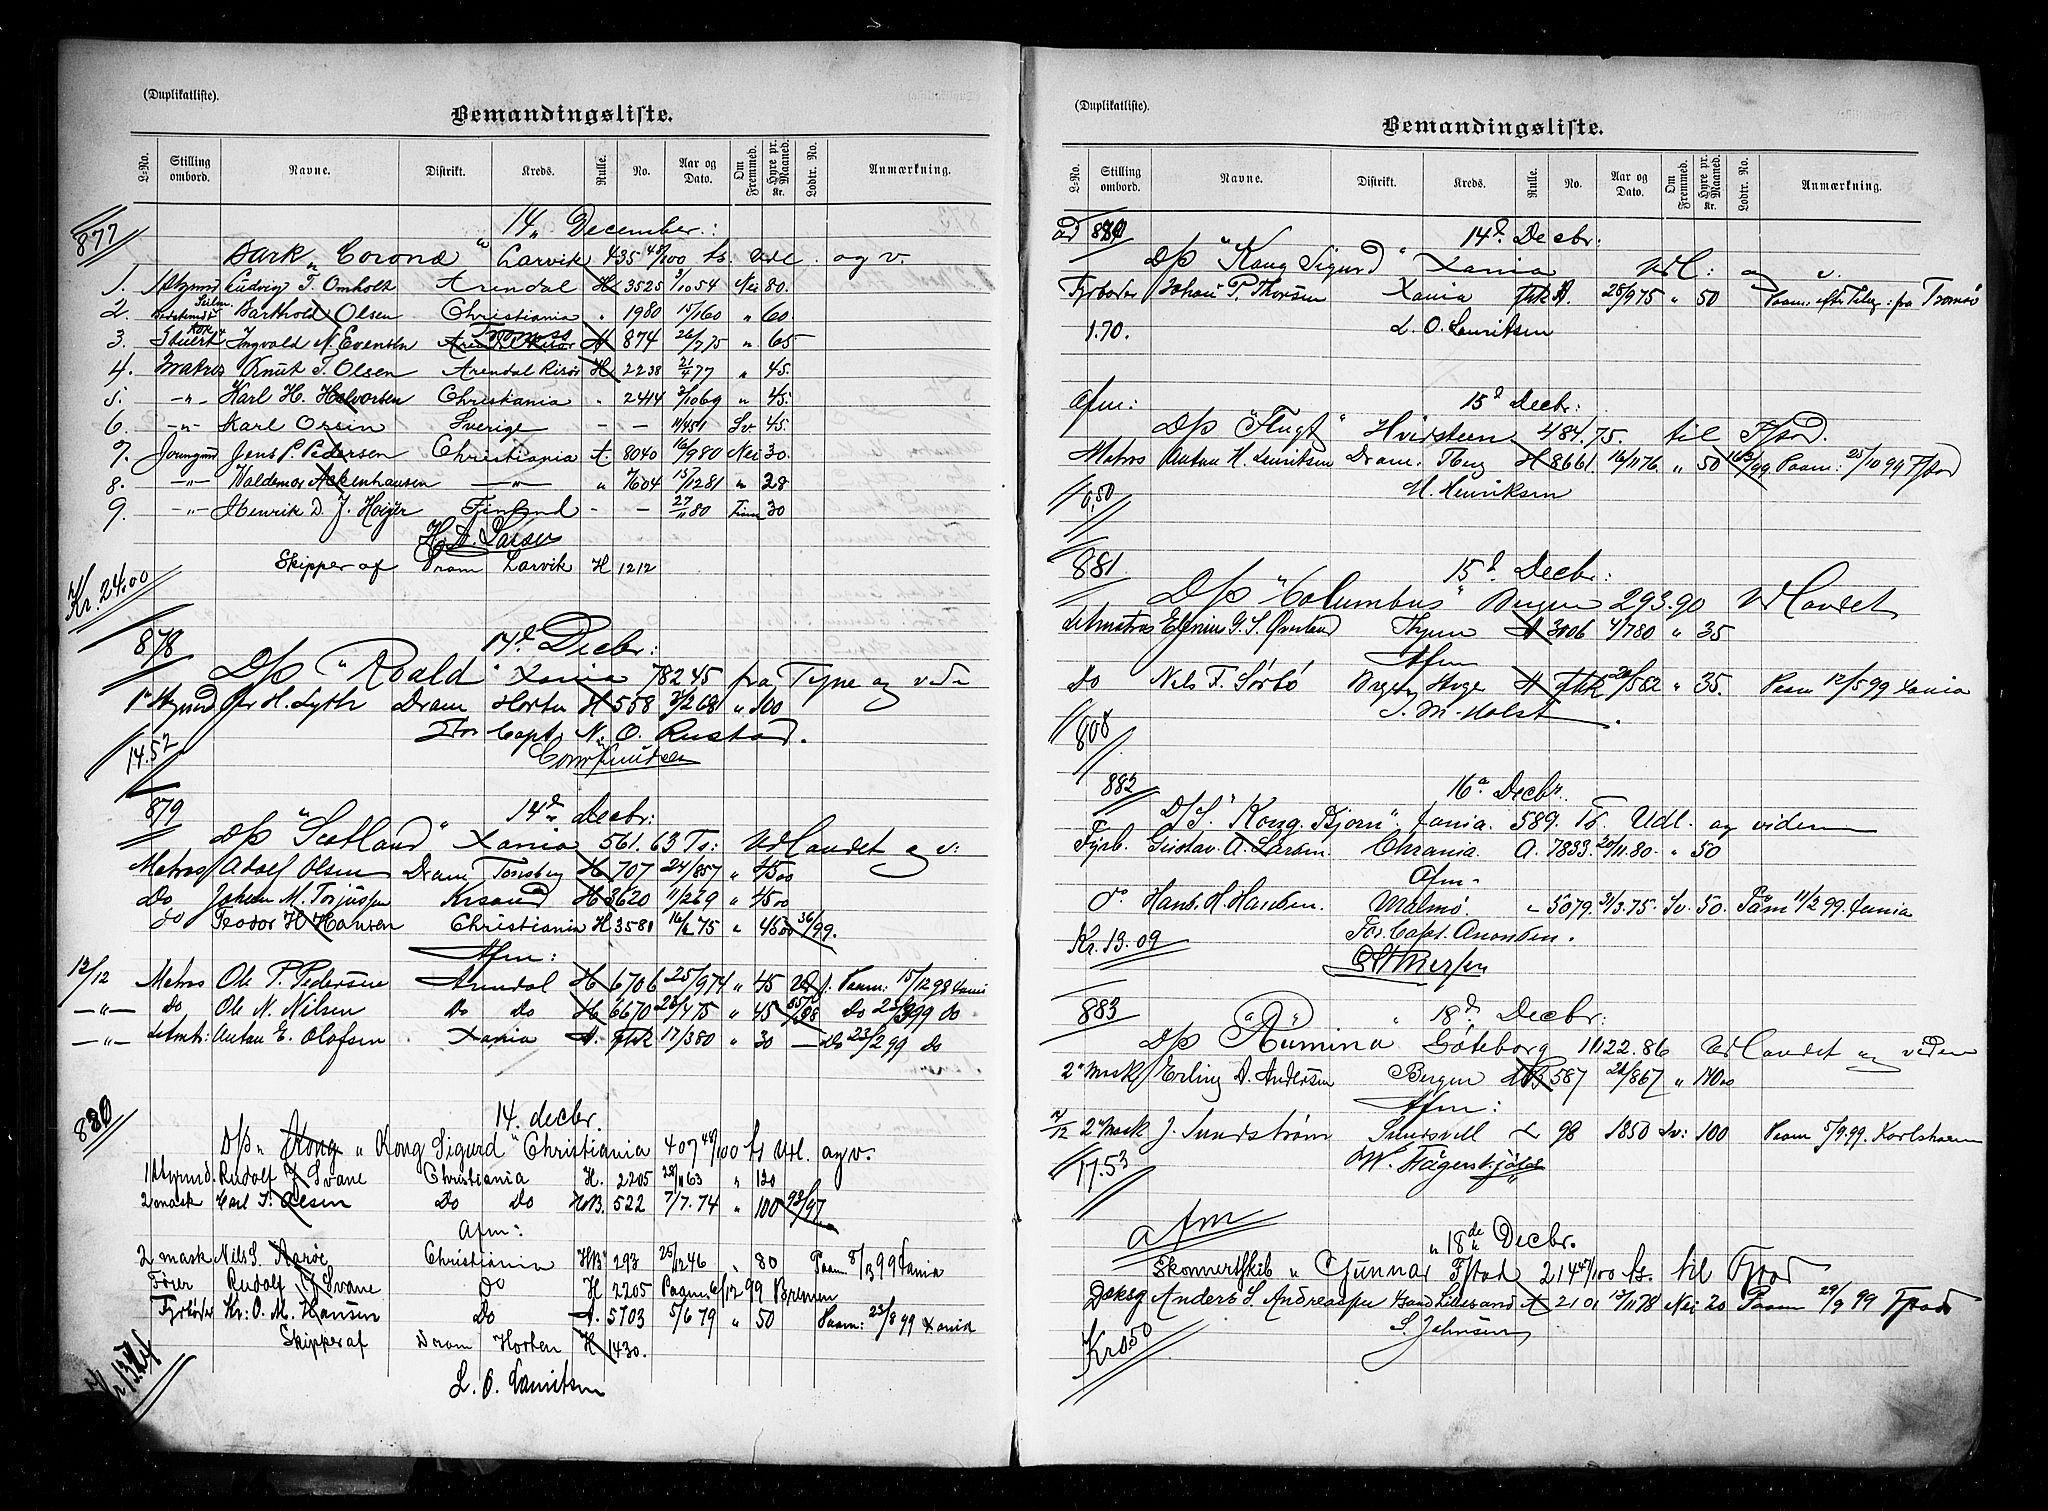 (Duplikatliste).
Bemandingsliste.
L-No. Stilling ombord. Navne. Distrikt. Kreds. Rulle. No. Aar og Dato. Om Fremmed. Hyre pr. Maaned. Kr. Lodtr. No. Anmærkning.
877 14 December:
Bark "Corona" Larvik 435 48/100 ts. Udl. og v.
1. Styrmd Ludvig T. Omholt Arendal H 3525 3/10 54 Nei 80.
2. Barthold Olsen Christiania " 1980 15/1 60 " 60.
3. Stuert Kok Ingvald N. Evensen Tromsø H 874 26/7 75 " 65
4. Matros Knut T. Olsen Arendal Risør H 2238 21/4 77 " 45.
5. -"- Karl H. Halvorsen Christiania " 2414 2/10 69 " 45.
6. -"- Karl Ossin Sverige - - 11/4 51 Sv 45.
7. Jevngmd Jens P. Pedersen Christiania A 8040 16/9 80 Nei 30.
8. -"- Waldemar Ackenhausen -"- " 7604 15/12 81 " 28
9. -"- Henrik D. J. Höijer Finland - - 27/11 80 Finn 30
H. A. Larsen
Skipper af Dram Larvik H 1212
Kr. 24.00
878 14d Decbr:
D/s "Roald" Xania 782 45 fra Tyne og vide
1ste Styrmd Per H. Lyth Dram Horten H 558 2/2 68 " 100
For Capt. N. O. Rustad.
14.52
879 14d Decbr:
D/s "Scotland" Xania 561.63 Ts: Udlandet og v:
Matros Adolf Olsen Dram Tønsberg H 707 24/8 57 " 45 00
Do Johan M. Torjussen Krsand H 3620 11/2 69 " 45 00
do Teodor H Hansen Christiania H 3581 16/2 75 " 45 00 36/99.
Afm:
12/12 Matros Ole P. Pedersen Arendal H 6706 25/9 74 " 45 Paam: 15/12 98 Xania
-"- Do Ole N. Nilsen Do Do H 6670 23/4 75 " 45 Do 25/3 99 do
-"- Letmtr: Anton E. Olafsen Xania A. ftrk 17/3 80 " 30 - Do 23/2 99 Do
880 14. decbr.
D/s "Kong Sigurd" Christiania 407 48/100 ts Udl. og v.
1 Styrmd. Rudolf J Svane Christiania H. 2205 28/11 63 " 120
2 mask Carl S. Olsen Do Do HB. 522 7/7. 74 " 100 93/97
Afm:
2 mask Nils S. Aarøe Christiania HB 293 25/12 46 " 80 Paam 8/3 99 Xania
Fører Rudolf J Svane Do H 2205 Paam 6/12 99 Bremen
Fyrbøder Kr: O. M. Hansen Do A. 5703 5/6 79 " 50 Paam: 23/8 99 Xania
Skipper af Dram Horten H 1430.
L. O. Lauritsen
(Duplikatliste).
Bemandingsliste.
L-No. Stilling ombord. Navne. Distrikt. Kreds. Rulle. No. Aar og Dato. Om Fremmed. Hyre pr. Maaned. Kr. Lodtr. No. Anmærkning.
ad 880 14d Decbr:
D/s "Kong Sigurd" Xania Udl: og v.
Fyrbøder Johan P. Thorsen Xania ftrk A. 28/9 75 " 50 Paam. efter Teleg: fra Tromsø
1.70. L. O. Lauritsen
Afm: 15d Decbr:
D/s "Flugt" Hvidsteen 484.75. til Fstad.
Matros Anton H. Lauritsen Dram. Tbrg H 8661 16/11 76 " 50 Paam: 25/10 99 Fstad
M. Henriksen
0.50
881. 15d Decbr:
D/s "Columbus" Bergen 293.90 Udlandet
A 3006 4/7 80 " 35
Afm
Do Nils F. Sørbö H ftrk 20/5 62 " 35. Paam 12/5 99 Xania
J. M. Holst.
808
882 16de Decbr.
D/S. "Kong Bjørn" Xania. 589. Ts. Udl. og videre
Fyrb. Gustav A. Larsen. Chrania. A. 7833. 20/11. 80. " 50
Afm-
do Hans. H. Hansen. Malmö. - 5079. 31/3. 75. Sv. 50. Paam 11/2 99. Xania
For Capt. Anonsen.
Kr. 13.09
883 18d Decbr:
D/s "Rumina" Göteborg 1122.86 Udlandet og videre
2. Mask Erling A. Andersen Bergen HB 587 22/8 67 " 140 00
Afm:
2. Mask J. Sundström Sundsvall - 98 1850 Sv: 100 Paam 5/9. 99. Karlshavn
17.53
Afm "18de Decbr.
Skonnertskib "Gunnar" Fstad 214 ts. til Fstad
Dæksg Anders S. Andreassen Krsand Lillesand A 2101 13/11 78 Nei 20 Paam 29/9 99 Fstad
S. Johnsen
Kr 0.50